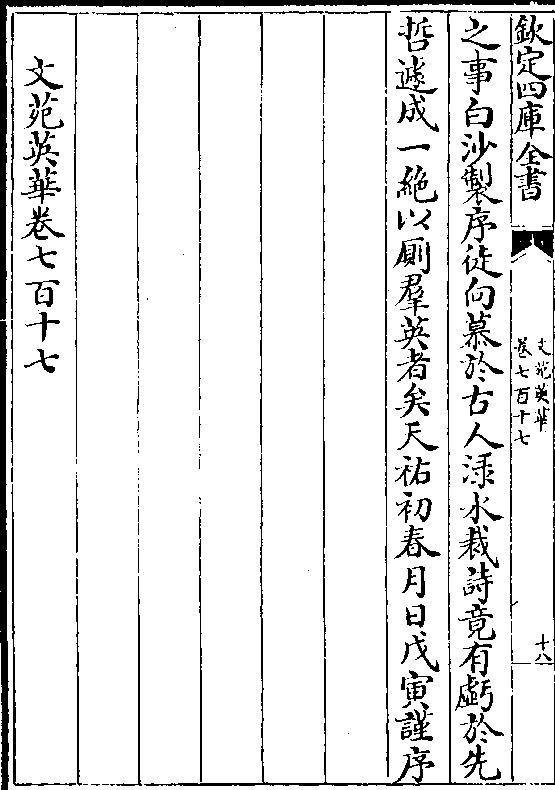 欽定四庫全書
文苑英華
卷七百十七
十八
之事白沙製序徒向慕於古人渌水裁詩竟有虧於先
哲遽成一絶以厠羣英者矣天祐初春月日戊寅謹序
文苑英華卷七百十七